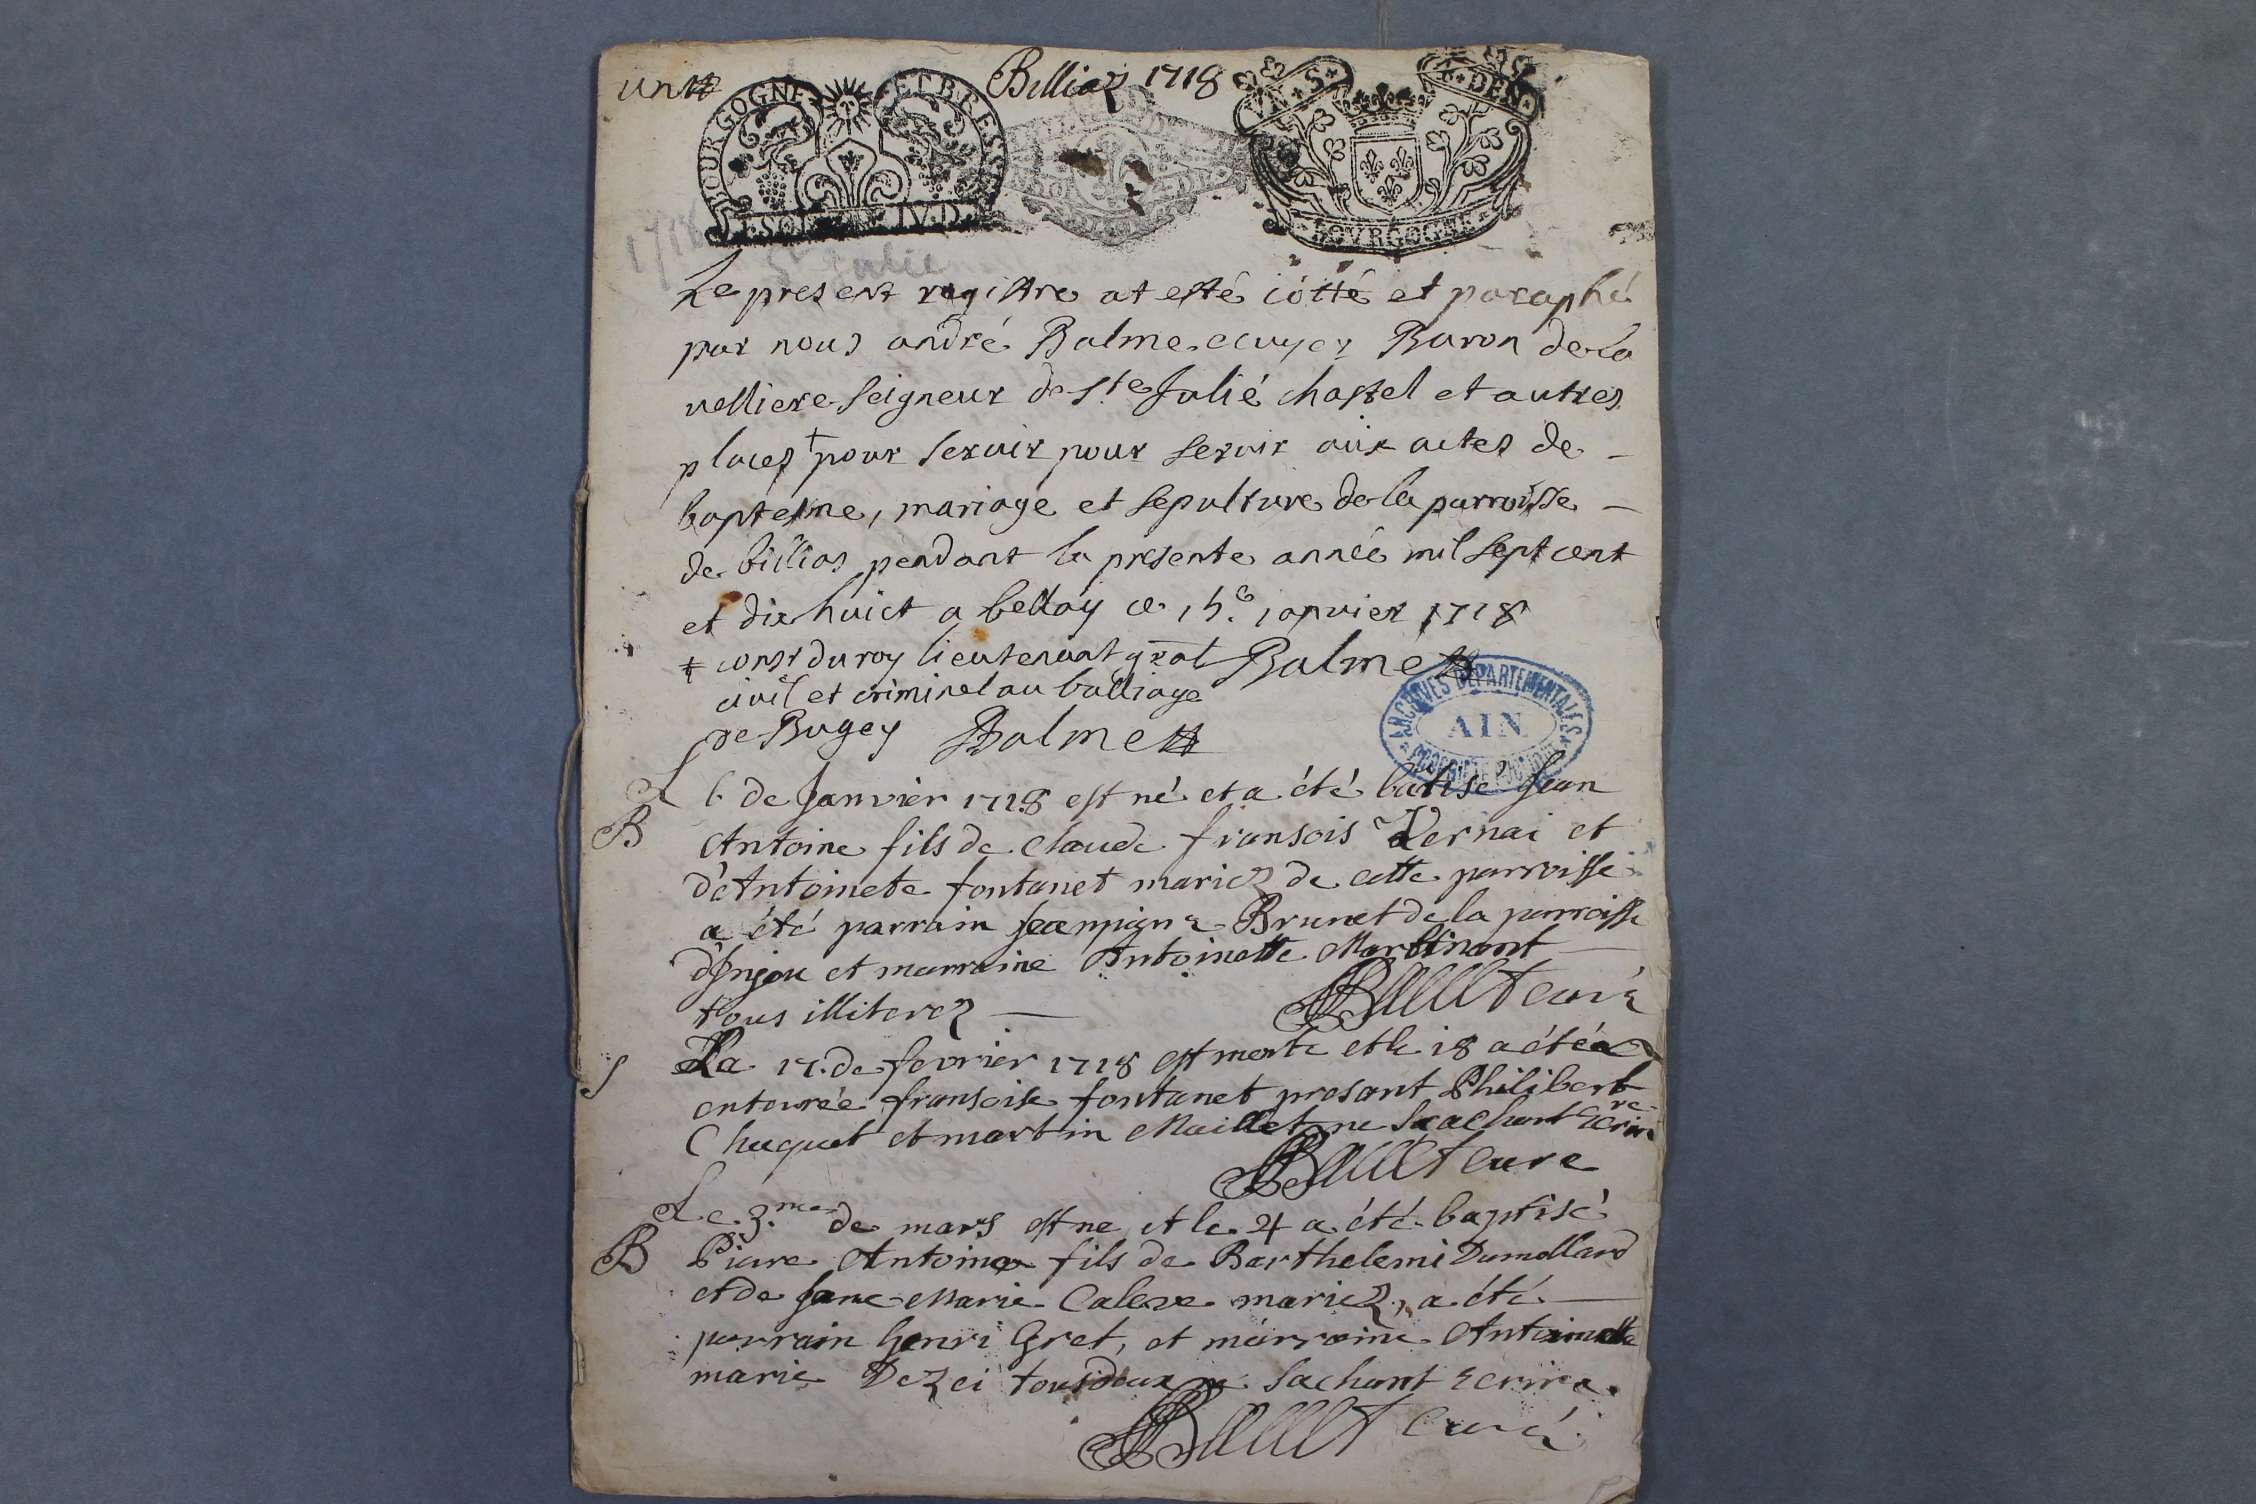 un
Billiaz 1718
BOURGOGNE ET BRESSE
VN S 6 DEN
BOVRGOGNE
1718
St Julie
Le present registre at esté cotté et paraphé
par nous andré Balme ecuyer Baron de la
velliere seigneur de ste Julié chastel et autres
places + pour servir pour servir aux actes de
baptesme, mariage et sepulture de la parroisse
de billias pendant la presente année mil sept cent
et dix huict a belley ce 15e janvier 1718
+ consr du roy lieutenant gral Balme
civil et criminel au balliage
de Bugey Balme
ARCHIVES DÉPARTEMENTALES
AIN
PROPRIÉTÉ PUBLIQUE
L 6 de Janvier 1718 est né et a été batisé Jean
B
Antoine fils de Claude fransois Vernai et
d'Antoinete fontanet mariez de cette parroisse
a été parrain Brunet de la parroisse
d'Injou et marraine Antoinette Martinant
tous illiterez
Baillet curé
S
La 17 de fevrier 1718 est morte et le 18 a été
enterrée fransoise fontanet presant Philibert
Chuquet et martin Maillet ne sachant ecrire
Baillet cure
Le 3.me de mars est ne et le 4 a été baptisé
B
Piere Antoine fils de Barthelemi Dumollard
et de Jane Marie mariez, a été
parrain henri Gret, et marraine Antoinette
marie Dezei tous deux ne sachant ecrire.
Baillet Curé